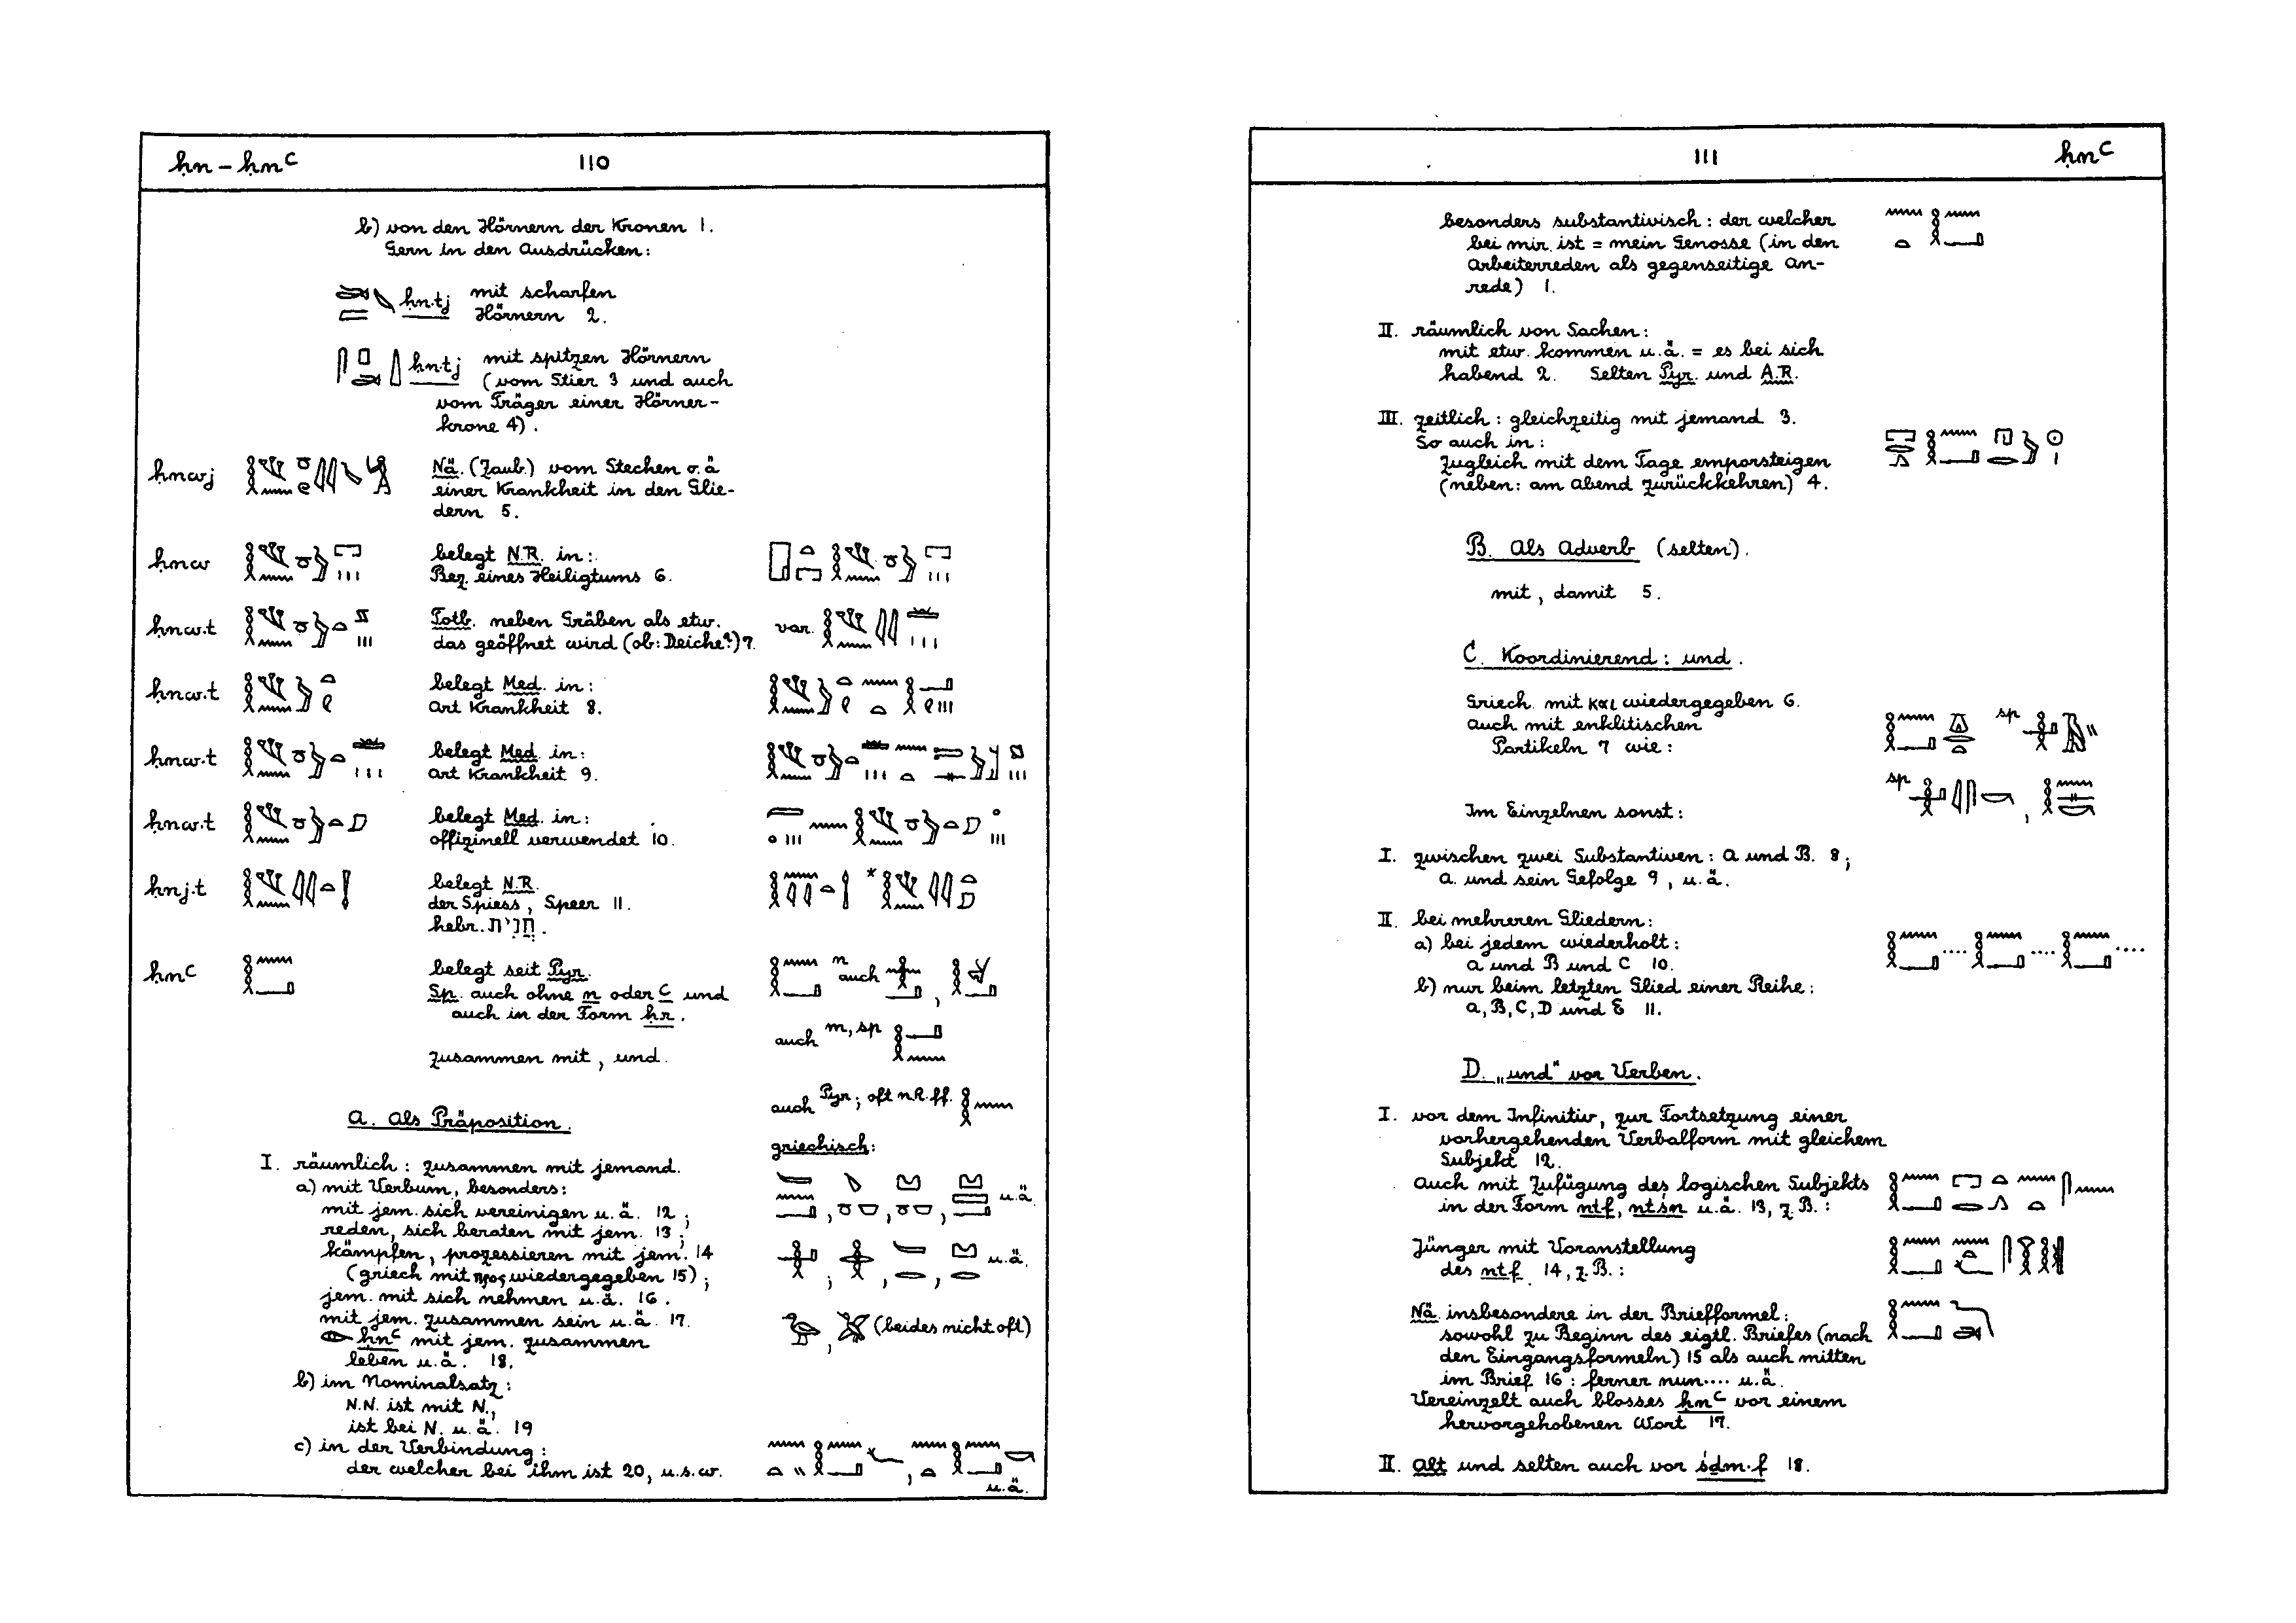 ḥn – ḥnꜥ 110
b) von den Hörnern der Kronen 1.
Gern in den Ausdrücken:
ḥn·tj mit scharfen
Hörnern 2.
ḥn·tj mit spitzen Hörnern
(vom Stier 3 und auch
vom Träger einer Hörner-
krone 4).
ḥnwj Nä. (Zaub.) vom Stechen o.ä
einer Krankheit in den Glie-
dern 5.
ḥnw belegt N.R. in:
Bez. eines Heiligtums 6.
ḥnw.t Totb. neben Gräben als etw.
das geöffnet wird (ob: Deiche?) 7. var.
ḥnw.t belegt Med. in:
Art Krankheit 8.
ḥnw.t belegt Med. in:
Art Krankheit 9.
ḥnw.t belegt Med. in:
offizinell verwendet 10.
ḥnj.t belegt N.R.
der Spiess, Speer 11.
hebr. חֲנִית.
ḥnꜥ belegt seit Pyr.
Sp. auch ohne n oder ꜥ und
auch in der Form ḥr.
zusammen mit, und.
n
auch
auch m, sp
auch Pyr; oft N.R. ff.
griechisch:
u.ä.
u.ä.
(beides nicht oft)
A. Als Präposition.
I. räumlich: zusammen mit jemand.
a) mit Verbum, besonders:
mit jem. sich vereinigen u.ä. 12;
reden, sich beraten mit jem. 13;
kämpfen, prozessieren mit jem. 14
(griech mit προς wiedergegeben 15);
jem. mit sich nehmen u.ä. 16.
mit jem. zusammen sein u.ä. 17.
ḥnꜥ mit jem. zusammen
leben u.ä. 18.
b) im Nominalsatz:
N.N. ist mit N.,
ist bei N. u.ä. 19
c) in der Verbindung:
der welcher bei ihm ist 20, u.s.w.
u.ä.
111 ḥnꜥ
besonders substantivisch: der welcher
bei mir ist = mein Genosse (in den
Arbeiterreden als gegenseitige An-
rede) 1.
II. räumlich von Sachen:
mit etw. kommen u.ä. = es bei sich
habend 2. Selten Pyr. und A.R.
III. zeitlich: gleichzeitig mit jemand 3.
So auch in:
zugleich mit dem Tage emporsteigen
(neben: am Abend zurückkehren) 4.
B. Als Adverb (selten).
mit, damit 5.
C. Koordinierend: und.
Griech. mit και wiedergegeben 6.
Auch mit enklitischen
Partikeln 7 wie:
sp
sp
Im Einzelnen sonst:
I. zwischen zwei Substantiven: A und B. 8;
A. und sein Gefolge 9, u.ä.
II. bei mehreren Gliedern:
a) bei jedem wiederholt:
A und B und C 10.
b) nur beim letzten Glied einer Reihe:
A, B, C, D und E 11.
D. „und" vor Verben.
I. vor dem Infinitiv, zur Fortsetzung einer
vorhergehenden Verbalform mit gleichem
Subjekt 12.
Auch mit Zufügung des logischen Subjekts
in der Form ntf, ntśn u.ä. 13, z.B.:
Jünger mit Voranstellung
des ntf 14, z.B.:
Nä. insbesondere in der Briefformel:
sowohl zu Beginn des eigtl. Briefes (nach
den Eingangsformeln) 15 als auch mitten
im Brief 16: ferner nun.... u.ä.
Vereinzelt auch blosses ḥnꜥ vor einem
hervorgehobenen Wort 17.
II. Alt und selten auch vor śḏm·f 18.